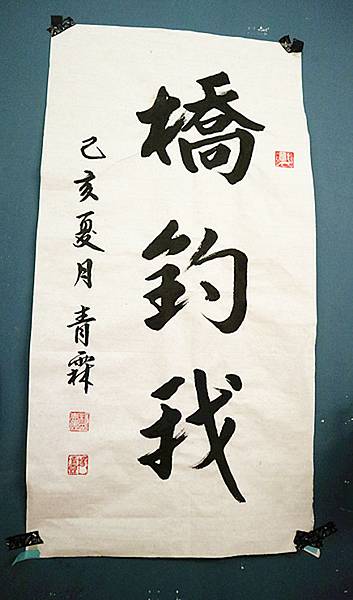 橋釣我
己亥夏月 青霖